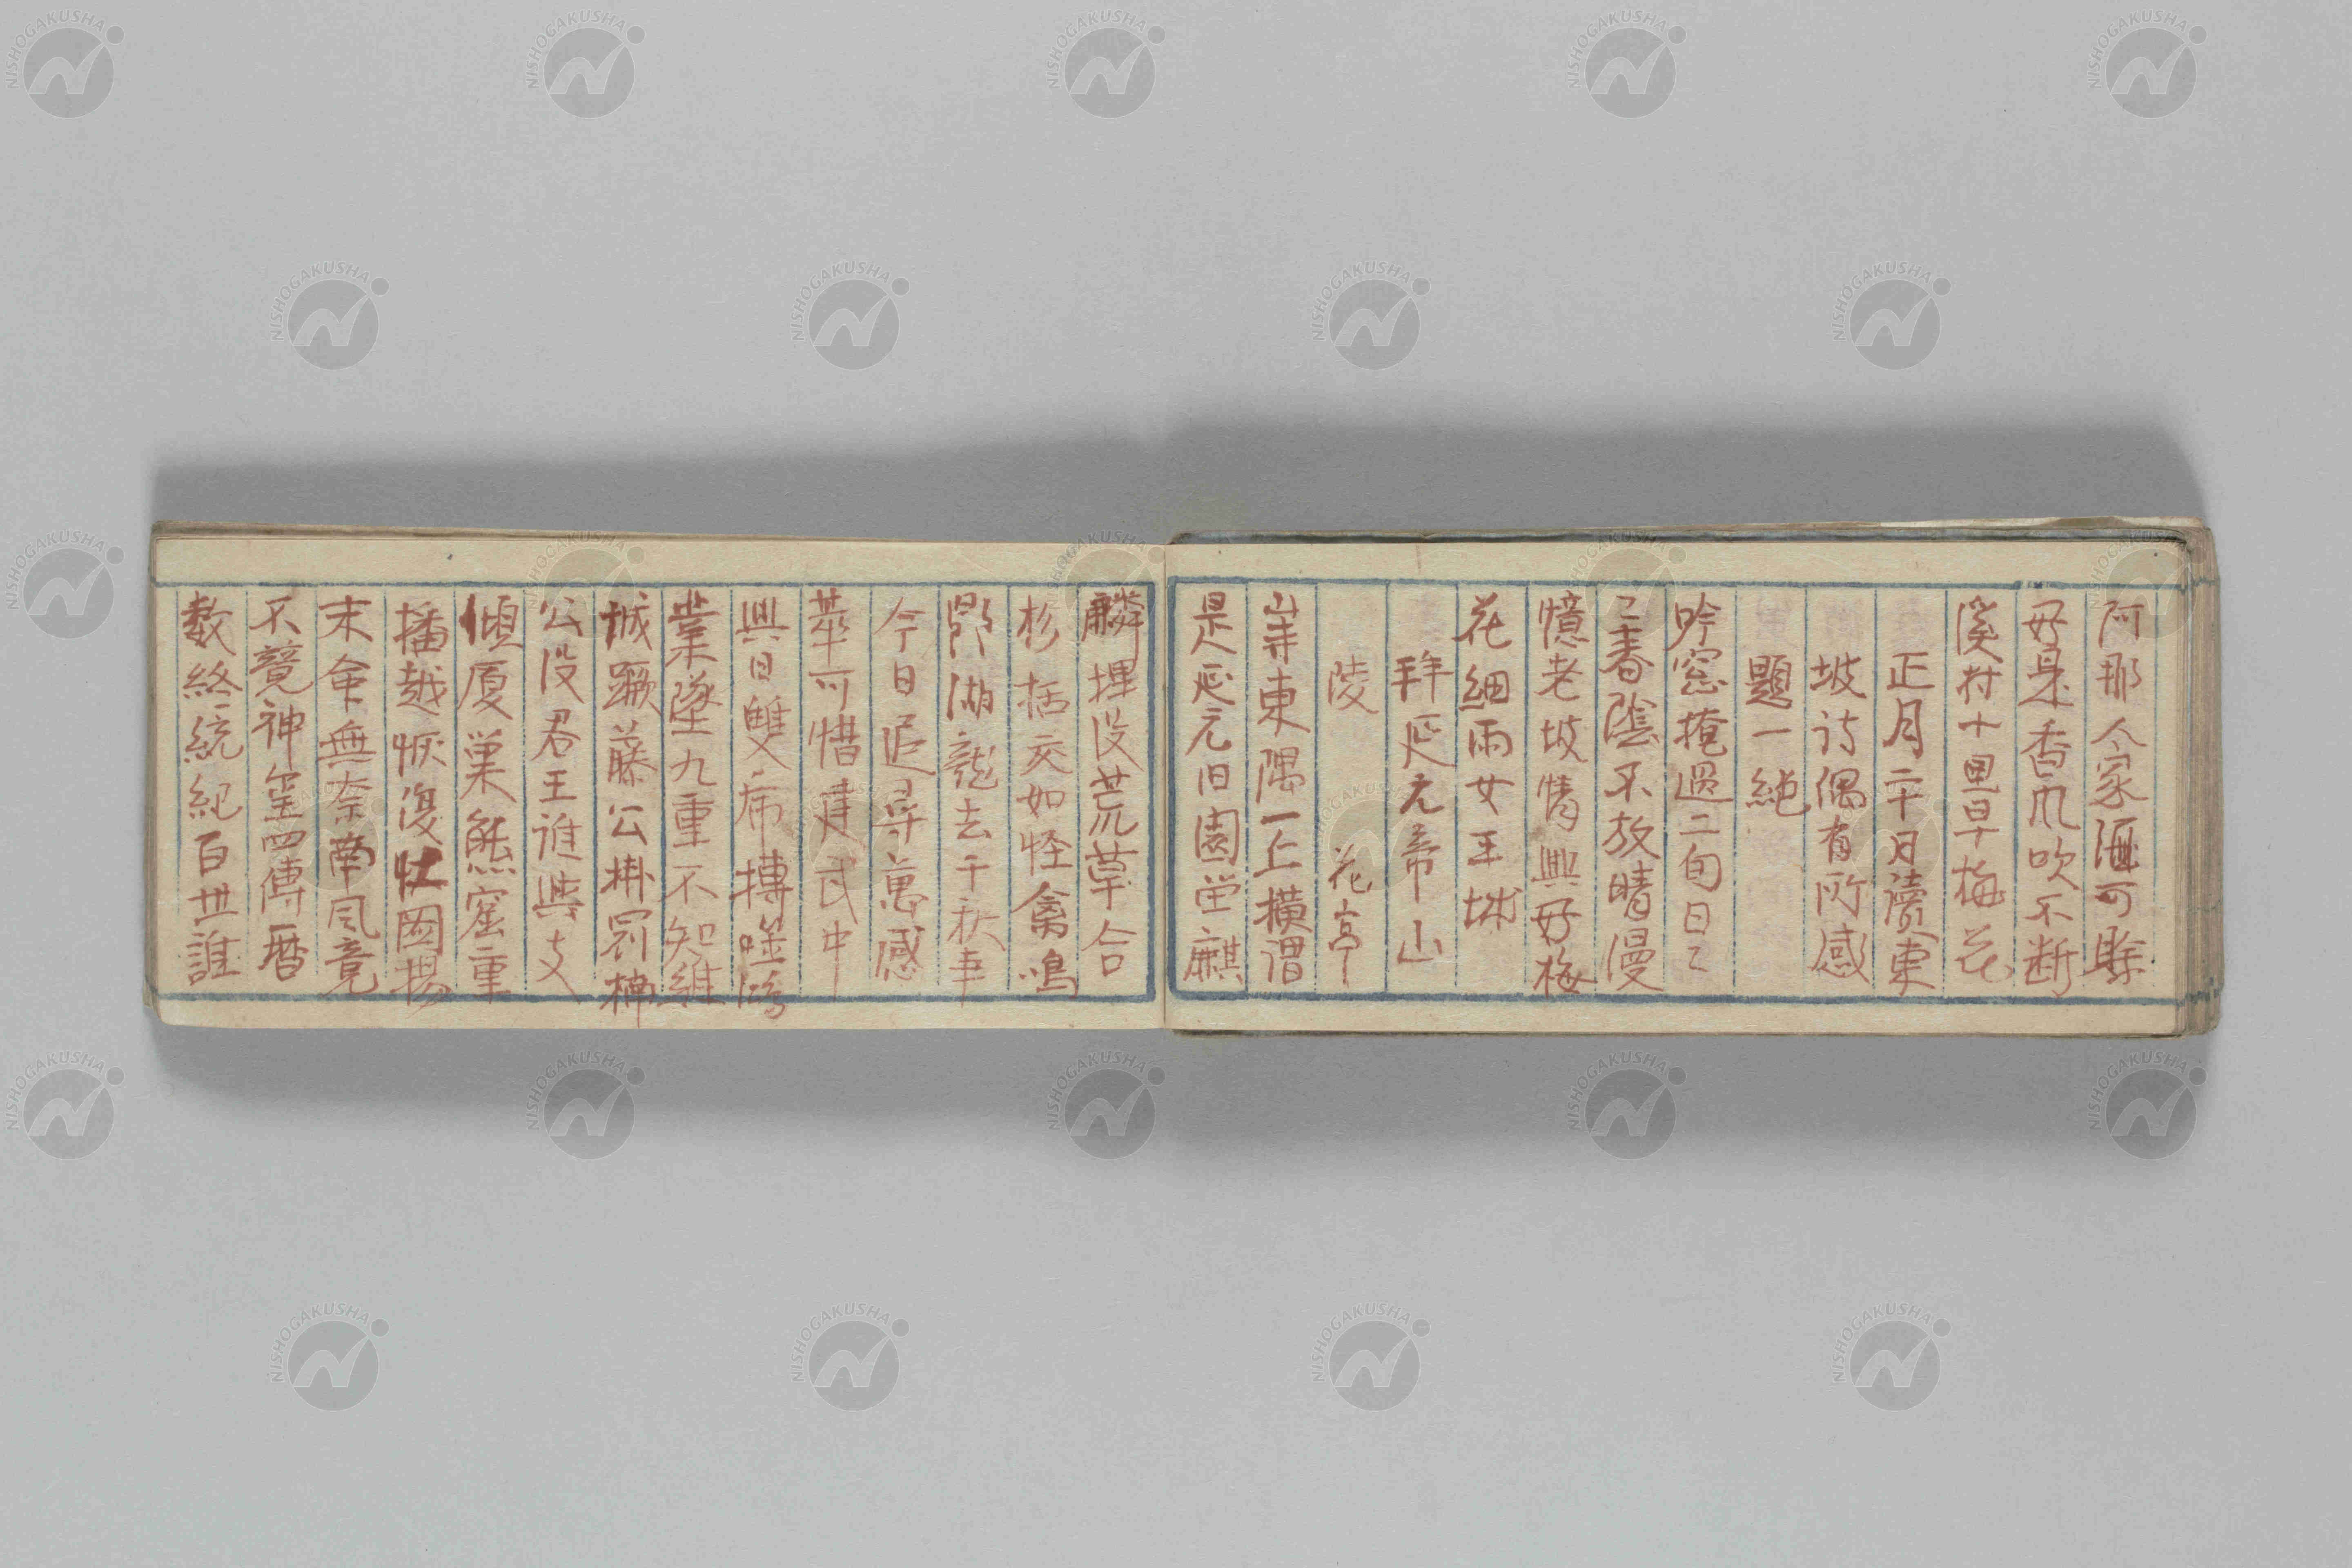 阿那人家酒可賖
好是香風吹不断
溪村十里早梅花
正月二十日讀東
坡诗偶有所感
題一絶
吟窓掩過二旬日〻
〻春陰不放晴漫
憶老坡情興好梅
花細雨女王城
拜延元帝山
陵 花亭
峯東隅一丘横謂
是延元旧園塋麒
麟埋没荒草合
杉栝交如怪禽鳴
鼎湖龍去千秋事
今日追尋萬感
萃可惜建武中
興日雙席摶噬
業墜九重不知維
城蹶藤公掛冠楠
公没君王誰與支
傾厦巣熊窟重
播越恢復壮圖
末命無奈南風竟
不競神璽四傳暦
数終統紀百世誰
NISHOGAKUSHA